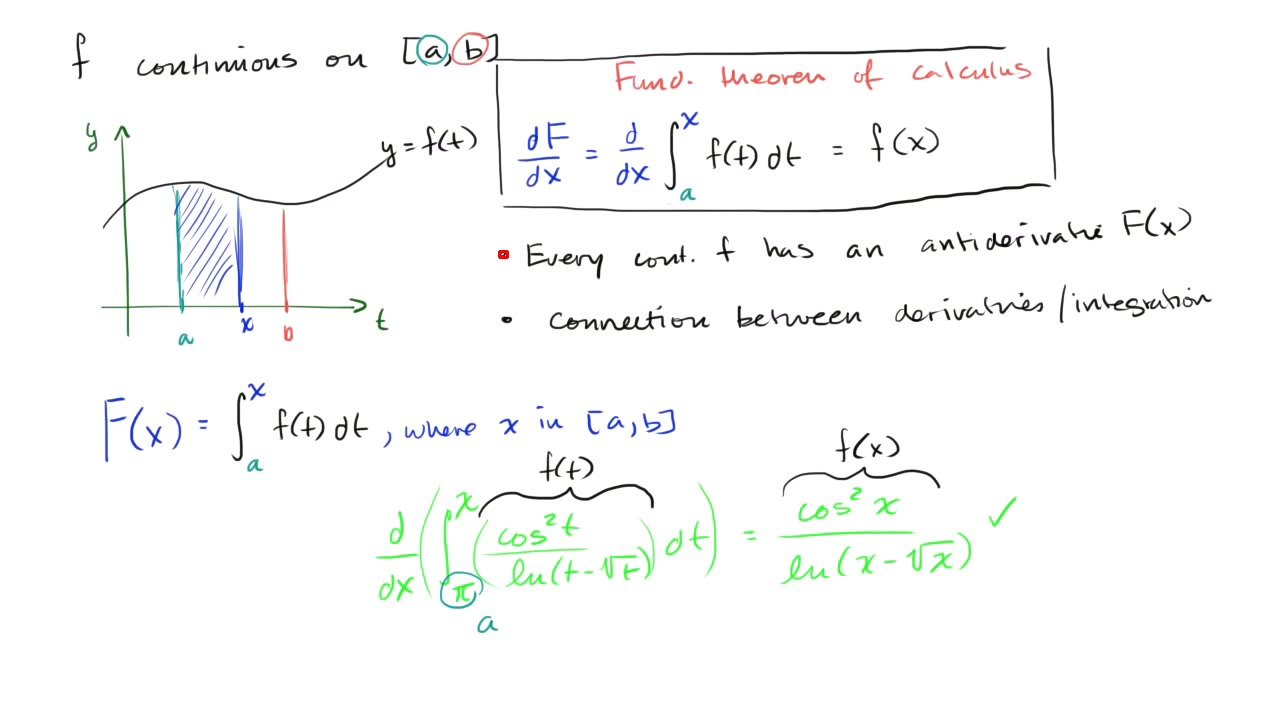 f continuous on [a, b]
Fund. theorem of calculus
dF/dx = d/dx ∫_a^x f(t) dt = f(x)
y
y = f(t)
a
x
b
t
• Every cont. f has an antiderivative F(x)
• connection between derivatives/integration
F(x) = ∫_a^x f(t) dt, where x in [a, b]
f(t)
f(x)
d/dx (∫_π^x (cos²t / ln(t-√t)) dt) = cos²x / ln(x-√x) ✓
a